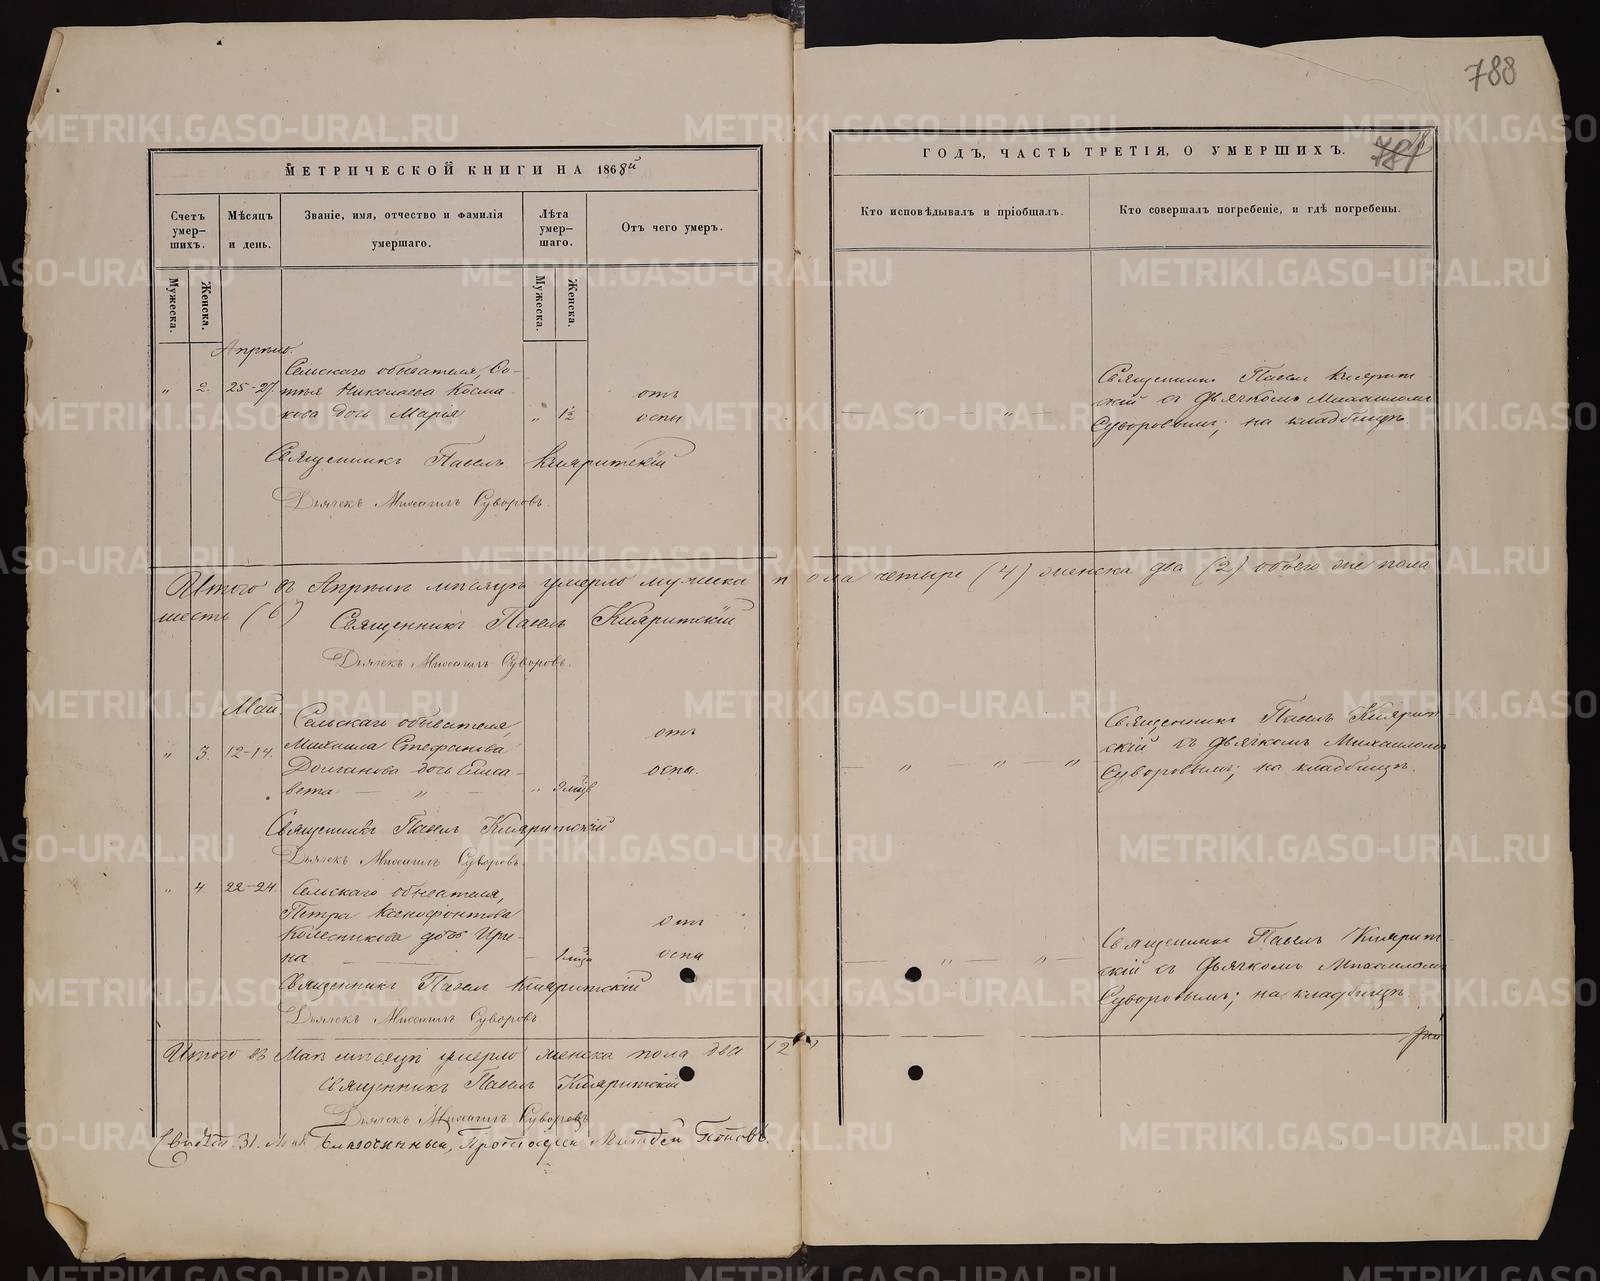 788
МЕТРИЧЕСКОЙ КНИГИ НА 1868й
ГОДЪ, ЧАСТЬ ТРЕТІЯ, О УМЕРШИХЪ.
Счетъ умер-
шихъ.
Мѣсяцъ
и день.
Званіе, имя, отчество и фамилія
умершаго.
Лѣта
умер-
шаго.
Отъ чего умеръ.
Кто исповѣдывалъ и пріобщалъ.
Кто совершалъ погребеніе, и гдѣ погребены.
Мужеска.
Женска.
Мужеска.
Женска.
Апрѣль.
„ 2. 25-27.
Сельскаго обывателя, Со-
Николаева Косма-
кова дочь Марія
„ 1½
отъ
оспы
— „ — „ —
Священникъ Павелъ
скій съ дьячкомъ Михаиломъ
Суворовымъ; на кладбищѣ.
Священникъ Павелъ
Дьячекъ Михаилъ Суворовъ.
Итого въ Апрѣлѣ мѣсяцѣ умерло мужеска пола четыре (4) женска два (2) обоего же пола
шесть (6)
Священникъ Павелъ
Дьячекъ Михаилъ Суворовъ.
Май.
„ 3. 12-14.
Сельскаго обывателя,
Михаила Стефанова
Долганова дочь Елиса-
вета — „ —
„
отъ
оспы.
— „ — „ — „
Священникъ Павелъ
скій съ дьячкомъ Михаиломъ
Суворовымъ; на кладбищѣ.
Священникъ Павелъ
Дьячекъ Михаилъ Суворовъ.
„ 4. 22-24.
Сельскаго обывателя,
Петра Ксенофонтова
Колесникова дочь Ири-
на
отъ
оспы
— „ — „ —
Священникъ Павелъ
скій съ дьячкомъ Михаиломъ
Суворовымъ; на кладбищѣ.
Священникъ Павелъ
Дьячекъ Михаилъ Суворовъ
Итого въ Маѣ мѣсяцѣ умерло женска пола два (2)
Священникъ Павелъ
Дьячекъ Михаилъ Суворовъ
31. Мая Благочинный, Протоіерей Поповъ.
METRIKI.GASO-URAL.RU